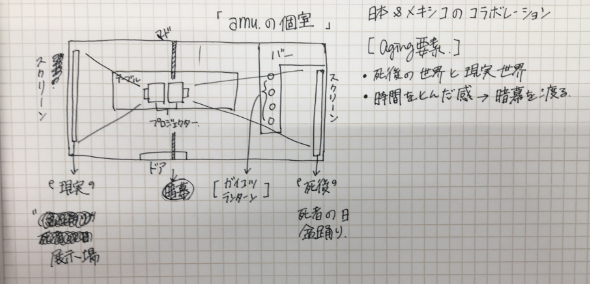 「amu.の個室」
日本&メキシコのコラボレーション
[aging要素.]
・死後の世界と現実世界
・時間をとんだ感→暗幕を渡る.
スクリーン
テーブル
プロジェクター
バー
スクリーン
ドア
"現実"
展示場
暗幕
[ガイコツ
ランターン]
"死後"
死者の日
盆踊り.